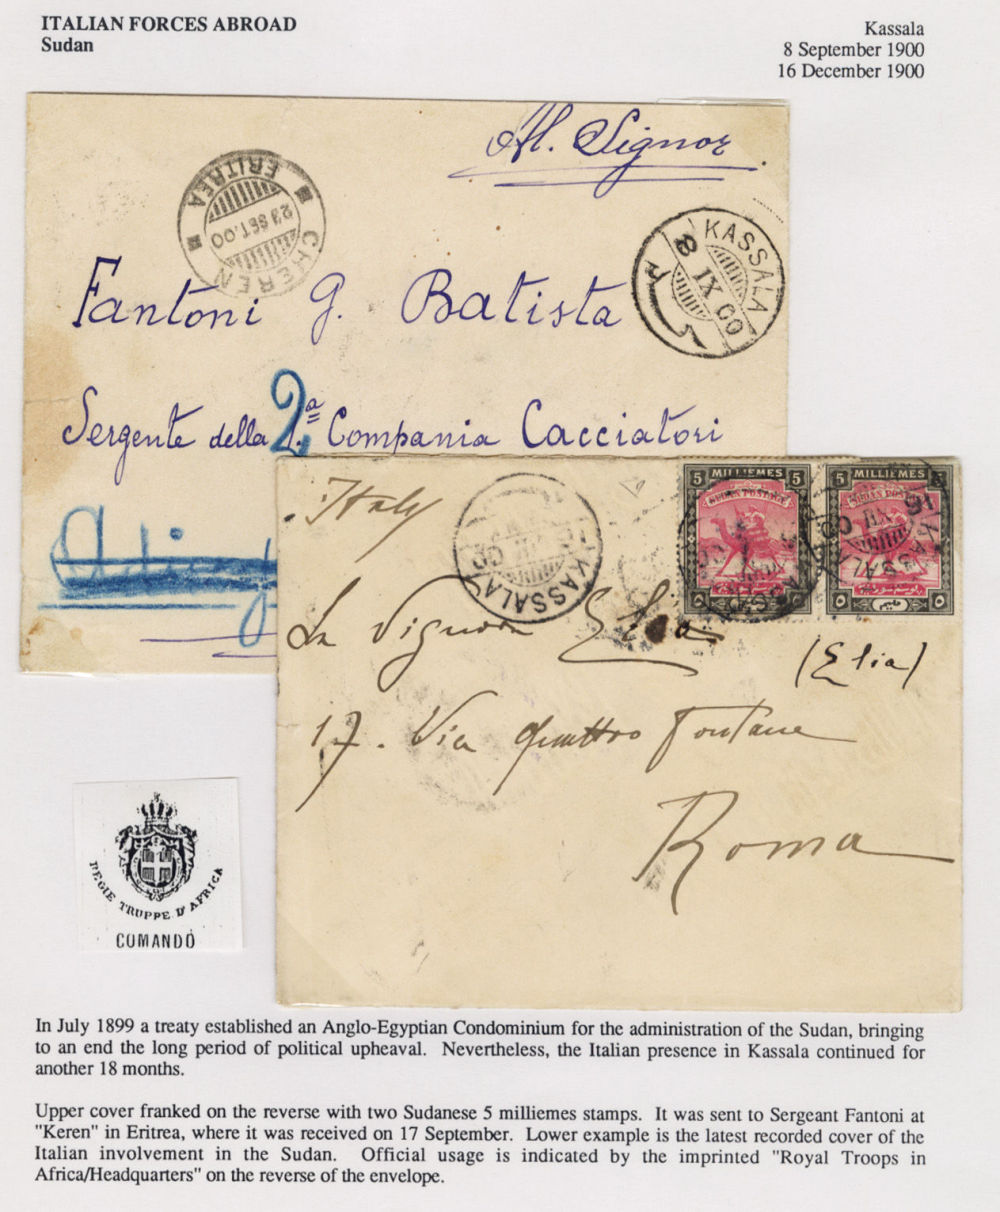 ITALIAN FORCES ABROAD
Sudan
Kassala
8 September 1900
16 December 1900
Al. Signor
CHEREN
ERITREA
SET.00
KASSALA
8 IX 00
Fantoni G. Batista
Sergente della 2.ª Compania Cacciatori
Italy
KASSALA
5 MILLIEMES 5
SUDAN POSTAGE
5 MILLIEMES 5
SUDAN POSTAGE
16 XII 00
KASSALA
La Signora Elia
(Elia)
17. Via Quattro Fontane
Roma
REGIE TRUPPE D'AFRICA
COMANDO
In July 1899 a treaty established an Anglo-Egyptian Condominium for the administration of the Sudan, bringing
to an end the long period of political upheaval. Nevertheless, the Italian presence in Kassala continued for
another 18 months.
Upper cover franked on the reverse with two Sudanese 5 milliemes stamps. It was sent to Sergeant Fantoni at
"Keren" in Eritrea, where it was received on 17 September. Lower example is the latest recorded cover of the
Italian involvement in the Sudan. Official usage is indicated by the imprinted "Royal Troops in
Africa/Headquarters" on the reverse of the envelope.